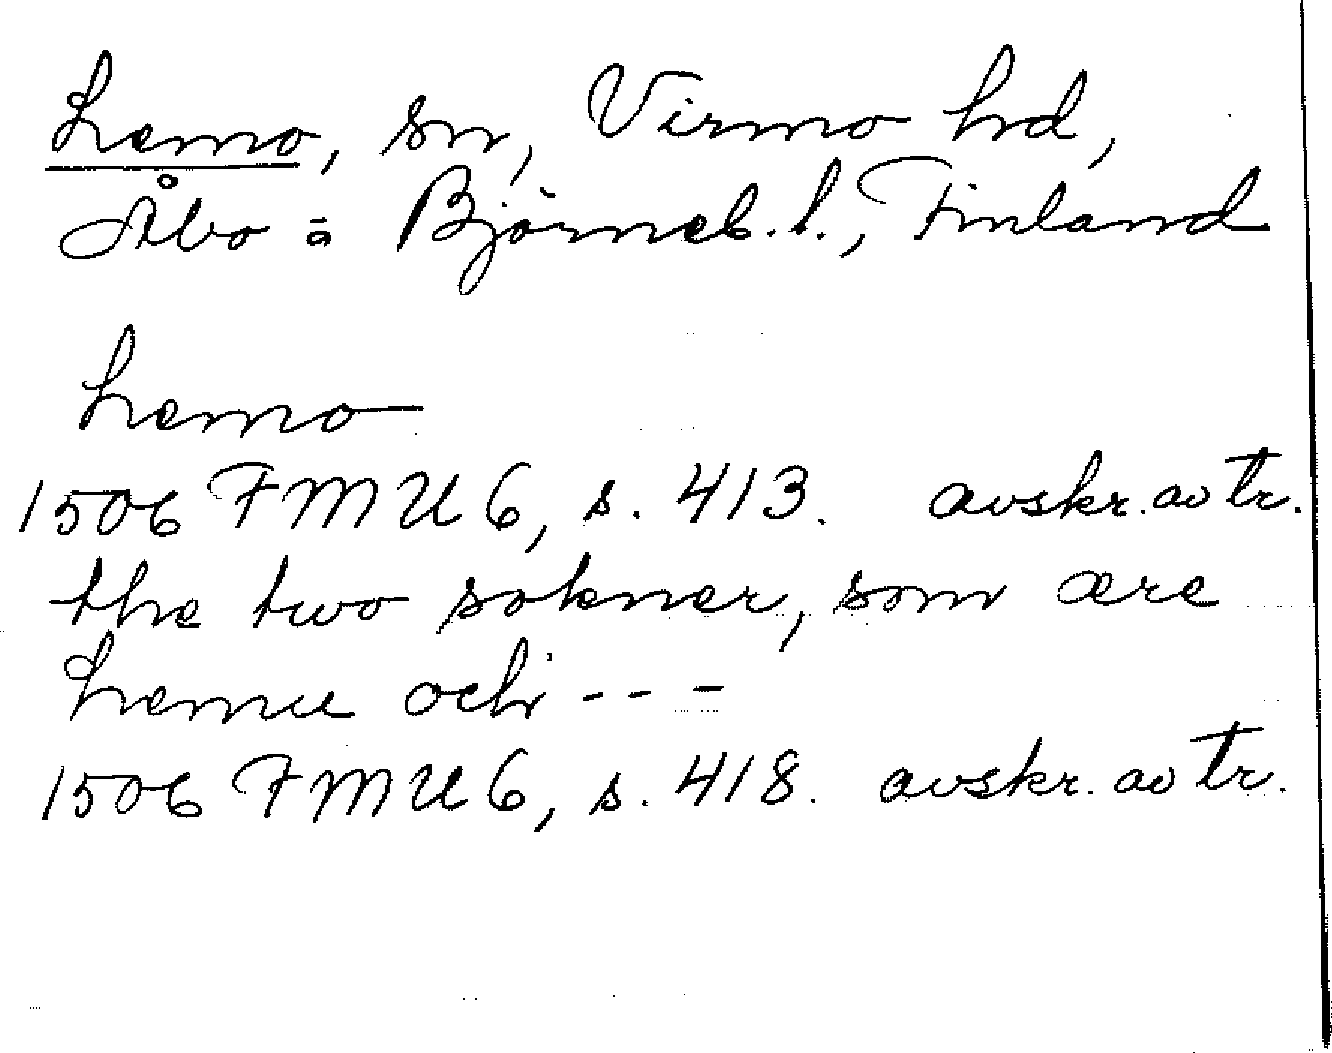 Lemo, sn, Virmo hd,
Åbo = Björneb. l., Finland
Lemo
1506 FMU 6, s. 413. avskr. av tr.
the two sokner, som ære
Lemu och - - -
1506 FMU 6, s. 418. avskr. av tr.